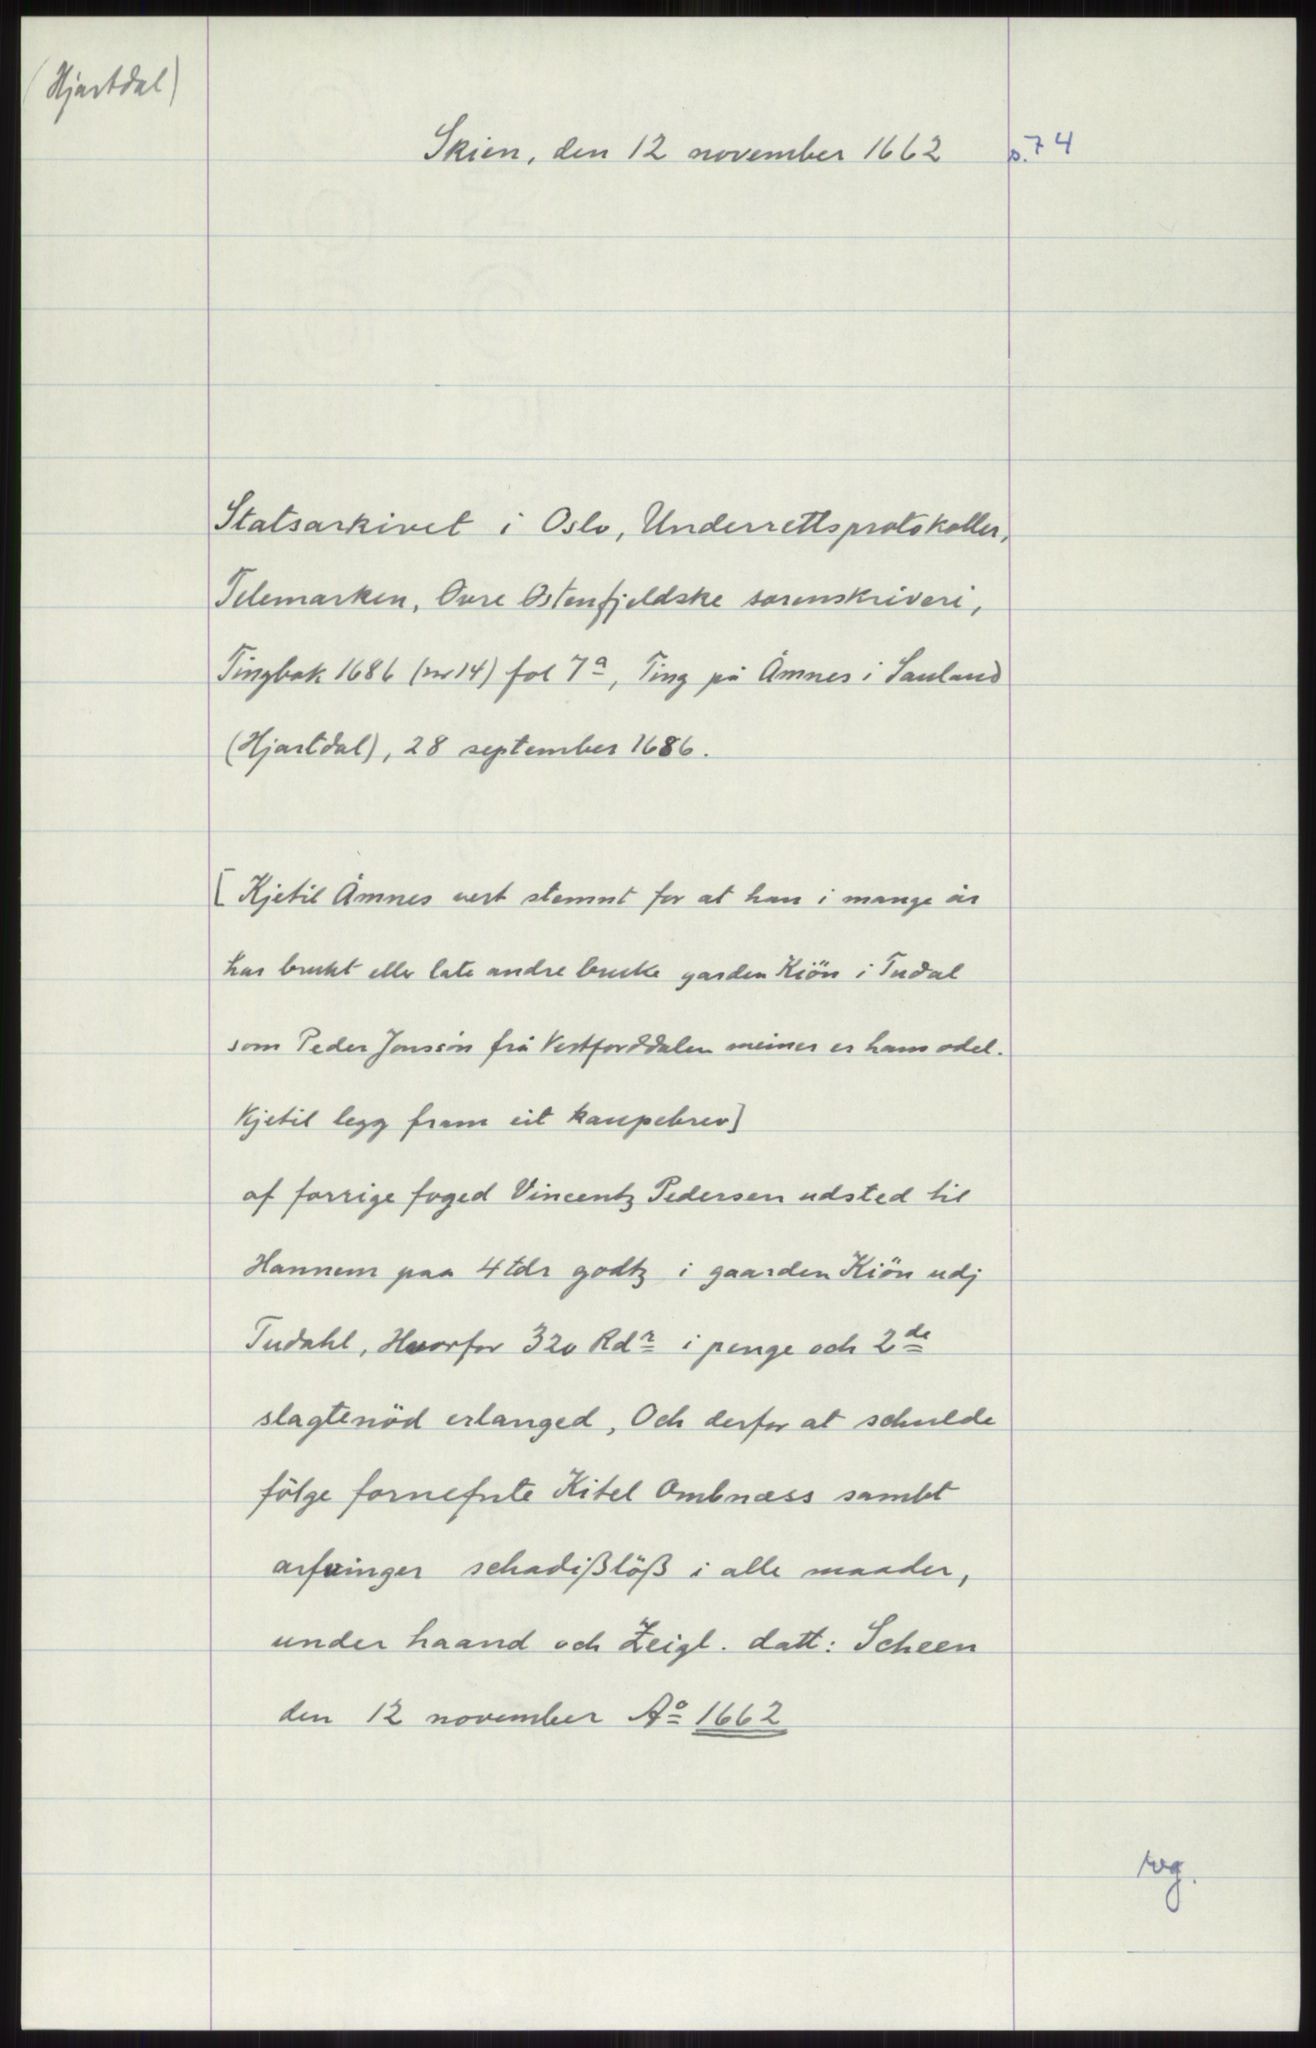 (Hjartdal)
Skien, den 12 november 1662
s. 74
Statsarkivet i Oslo, Underrettsprotokoller,
Telemarken, Øvre Østenfjeldske sorenskriveri,
Tingbok 1686 (nr 14) fol 7ª, Ting på Åmnes i Sauland
(Hjartdal), 28 september 1686.
[Kjetil Åmnes vert stemnt for at han i mange år
har brukt eller late andre bruke garden Kiön i Tudal
som Peder Jonssön frå Vestfjorddalen meiner er hans odel.
Kjetil legg fram eit kaupebrev]
af forrige foged Vincentz Pedersen udsted til
Hannem paa 4 tdr godtz i gaarden Kiön udj
Tudahl, Hvorfor 320 Rdr i penge och 2de
slagtenöd erlanged, Och derfor at schulde
fölge fornefnte Kitel Ombnæss sambt
arfvinger schadißlöß i alle maader,
under haand och Zeigl. datt: Scheen
den 12 november Aº 1662
reg.